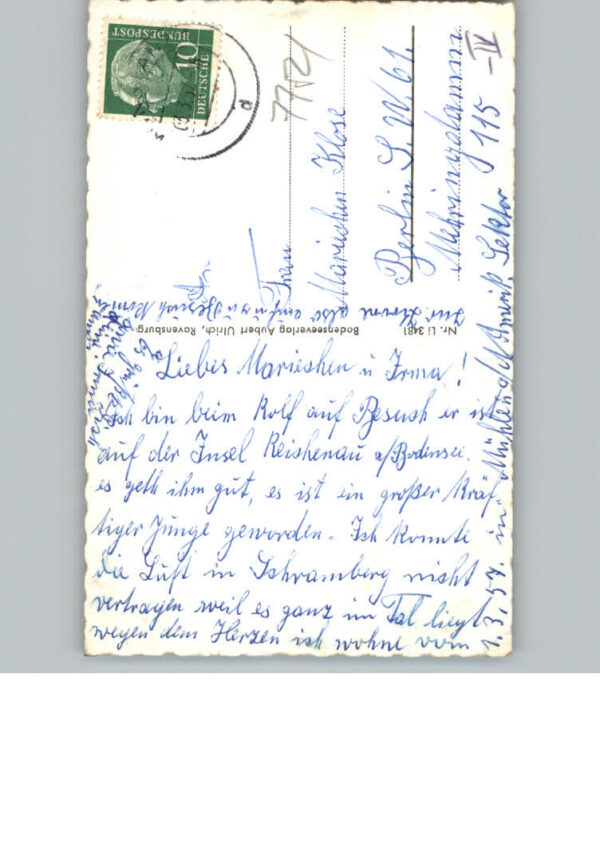 DEUTSCHE
BUNDESPOST
10
77A21
Frau
Marieschen Klose
Berlin S.W. 61.
Mehringdamm
115 -IV
Nr. Li 3481 Bodenseeverlag Aubert Ulrich, Ravensburg
Liebes Marieschen u Irma!
Ich bin beim Rolf auf Besuch er ist
auf der Insel Reichenau a/Bodensee.
es geth ihm gut, es ist ein großer kräf
tiger Junge geworden. Ich konnte
die Luft in Schramberg nicht
vertragen weil es ganz im Tal liegt
wegen dem Herzen ich wohne vom
1.3.57. in Mühlen Amerik. Sektor
zur also